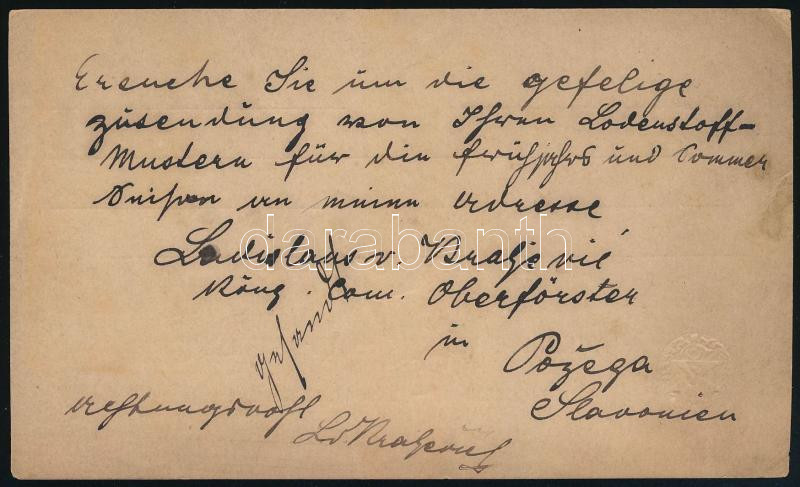 Ersuche Sie um die gefelige
zusendung von Ihren Lodenstoff-
Mustern für die frühjahrs und Sommer
Saison an meine Adresse,
Ladislaus v. Kraljević
Köng. Com. Oberförster
in
Požega
Slavonien
gesandt
achtungsvohl
LvKraljević
darabanth